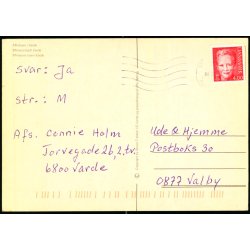 Svar: Ja
Str.: M
Afs. Connie Holm
Torvegade 26, 2.tv.
6800 Varde
Ude & Hjemme
Postboks 30
0877 Valby